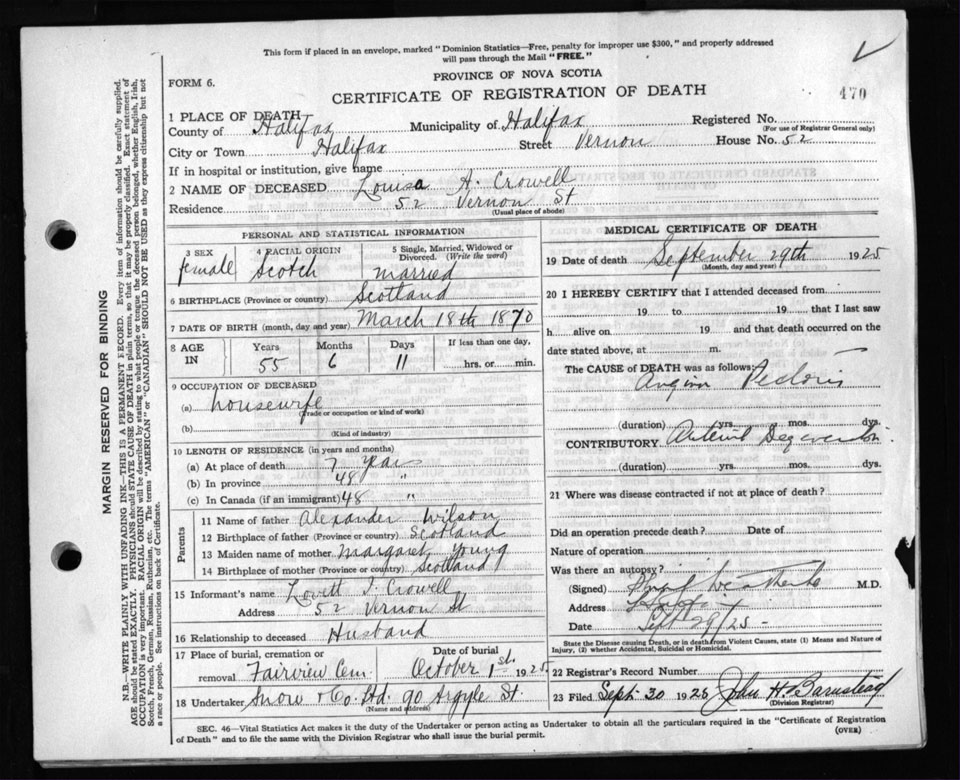 This form if placed in an envelope, marked "Dominion Statistics—Free, penalty for improper use $300," and properly addressed
will pass through the Mail "FREE."
PROVINCE OF NOVA SCOTIA
FORM 6.
CERTIFICATE OF REGISTRATION OF DEATH
470
1 PLACE OF DEATH
County of Halifax Municipality of Halifax Registered No.
(For use of Registrar General only)
City or Town Halifax Street Vernon House No. 52
If in hospital or institution, give name
2 NAME OF DECEASED Louisa A. Crowell
Residence 52 Vernon St
(Usual place of abode)
PERSONAL AND STATISTICAL INFORMATION
3 SEX female
4 RACIAL ORIGIN Scotch
5 Single, Married, Widowed or
Divorced. (Write the word)
married
6 BIRTHPLACE (Province or country) Scotland
7 DATE OF BIRTH (month, day and year) March 18th 1870
8 AGE IN
Years Months Days If less than one day,
55 6 11 hrs. or min.
9 OCCUPATION OF DECEASED
(a) housewife
(Trade or occupation or kind of work)
(b)
(Kind of industry)
10 LENGTH OF RESIDENCE (in years and months)
(a) At place of death 7 year
(b) In province 48 "
(c) In Canada (if an immigrant) 48 "
Parents
11 Name of father Alexander Wilson
12 Birthplace of father (Province or country) Scotland
13 Maiden name of mother Margaret Young
14 Birthplace of mother (Province or country) Scotland
15 Informant's name Lovett J. Crowell
Address 52 Vernon St
16 Relationship to deceased Husband
17 Place of burial, cremation or Date of burial
removal Fairview Cem October 1st. 1925
18 Undertaker Snow & Co Ltd. 90 Argyle St.
(Name and address)
MEDICAL CERTIFICATE OF DEATH
19 Date of death September 29th 1925
(Month, day and year)
20 I HEREBY CERTIFY that I attended deceased from
19 to 19 that I last saw
h alive on 19 and that death occurred on the
date stated above, at m.
The CAUSE of DEATH was as follows:
Angina Pectoris
(duration) yrs. mos. dys.
CONTRIBUTORY Arterial Degeneration
(duration) yrs. mos. dys.
21 Where was disease contracted if not at place of death?
Did an operation precede death? Date of
Nature of operation
Was there an autopsy?
(Signed) M.D.
Address
Date Sept 29/25
State the Disease causing Death, or in death from Violent Causes, state (1) Means and Nature of
Injury, (2) whether Accidental, Suicidal or Homicidal.
22 Registrar's Record Number
23 Filed Sept. 30 1925 John H Barnstead
(Division Registrar)
SEC. 46—Vital Statistics Act makes it the duty of the Undertaker or person acting as Undertaker to obtain all the particulars required in the "Certificate of Registration
of Death" and to file the same with the Division Registrar who shall issue the burial permit.
(OVER)
MARGIN RESERVED FOR BINDING
N.B.—WRITE PLAINLY WITH UNFADING INK—THIS IS A PERMANENT RECORD. Every item of information should be carefully supplied.
AGE should be stated EXACTLY. PHYSICIANS should STATE CAUSE OF DEATH in plain terms, so that it may be properly classified. Exact statement of
OCCUPATION is very important. RACIAL ORIGIN will be described by stating to what people or tongue the deceased person belonged, whether English, Irish,
Scotch, French, German, Russian, Ruthenian, etc. The terms "AMERICAN" or "CANADIAN" SHOULD NOT BE USED as they express citizenship but not
a race or people. See instructions on back of Certificate.